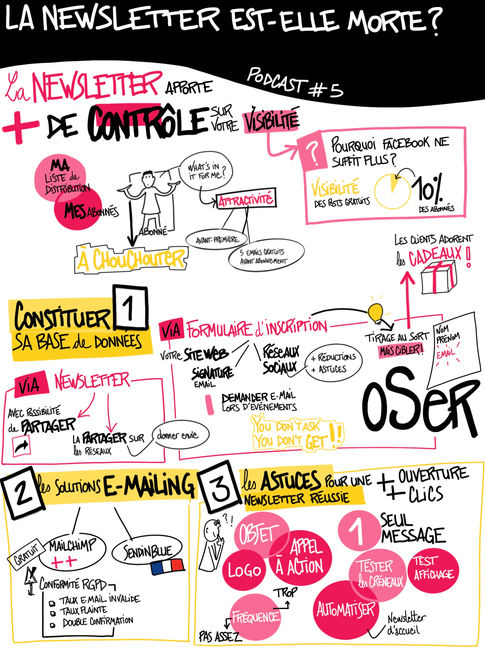 LA NEWSLETTER EST-ELLE MORTE?
PODCAST #5
La NEWSLETTER APPORTE
+ DE CONTRÔLE SUR VOTRE VISIBILITÉ
?
POURQUOI FACEBOOK NE
SUFFIT PLUS?
VISIBILITÉ
DES POSTS GRATUITS
10%
DES ABONNÉS
MA
LISTE de
DISTRIBUTION
MES ABONNÉS
WHAT'S IN
IT FOR ME?
ATTRACTIVITÉ
ABONNÉ
AVANT-PREMIÈRE
5 EMAILS GRATUITS
AVANT ABONNEMENT
A CHOUCHOUTER
LES CLIENTS ADORENT
les CADEAUX!
CONSTITUER 1
SA BASE de DONNÉES
VIA NEWSLETTER
AVEC POSSIBILITÉ
de PARTAGER
LA PARTAGER SUR
les RÉSEAUX
donner envie
VIA FORMULAIRE d'INSCRIPTION
VOTRE SITE WEB
SIGNATURE
EMAIL
RÉSEAUX
SOCIAUX
+ RÉDUCTIONS
+ ASTUCES
DEMANDER E-MAIL
LORS D'ÉVÉNEMENTS
YOU DON'T ASK
YOU DON'T GET!!
TIRAGE AU SORT
MAIS CIBLER!
NOM
PRÉNOM
EMAIL
OSER
2 les SOLUTIONS E-MAILING
GRATUIT
MAILCHIMP
++
SENDINBLUE
CONFORMITÉ RGPD
TAUX E-MAIL INVALIDE
TAUX PLAINTE
DOUBLE CONFIRMATION
3 les ASTUCES POUR UNE
NEWSLETTER RÉUSSIE
+ OUVERTURE
+ CLICS
?!
OBJET
LOGO
APPEL
À ACTION
1 SEUL
MESSAGE
TESTER
les CRÉNEAUX
TEST
AFFICHAGE
FRÉQUENCE
TROP
PAS ASSEZ
AUTOMATISER
Newsletter
d'accueil